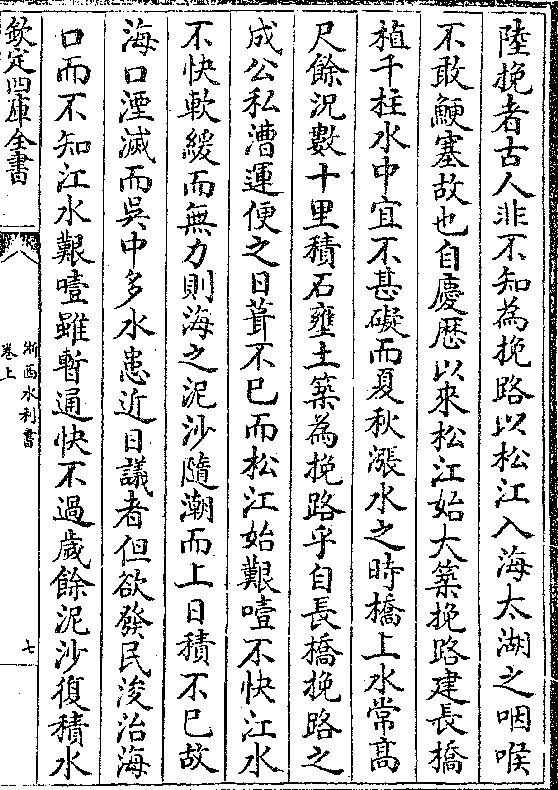 陸挽者古人非不知為挽路以松江入海太湖之咽喉
不敢鯁塞故也自慶厯以來松江始大築挽路建長橋
植千柱水中宜不甚礙而夏秋漲水之時橋上水常髙
尺餘況數十里積石壅土築為挽路乎自長橋挽路之
成公私漕運便之日葺不已而松江始艱噎不快江水
不快軟緩而無力則海之泥沙隨潮而上日積不已故
海口湮滅而吳中多水患近日議者但欲發民浚治海
口而不知江水艱噎雖暫通快不過歲餘泥沙復積水
欽定四庫全書
浙西水利書
卷上
七